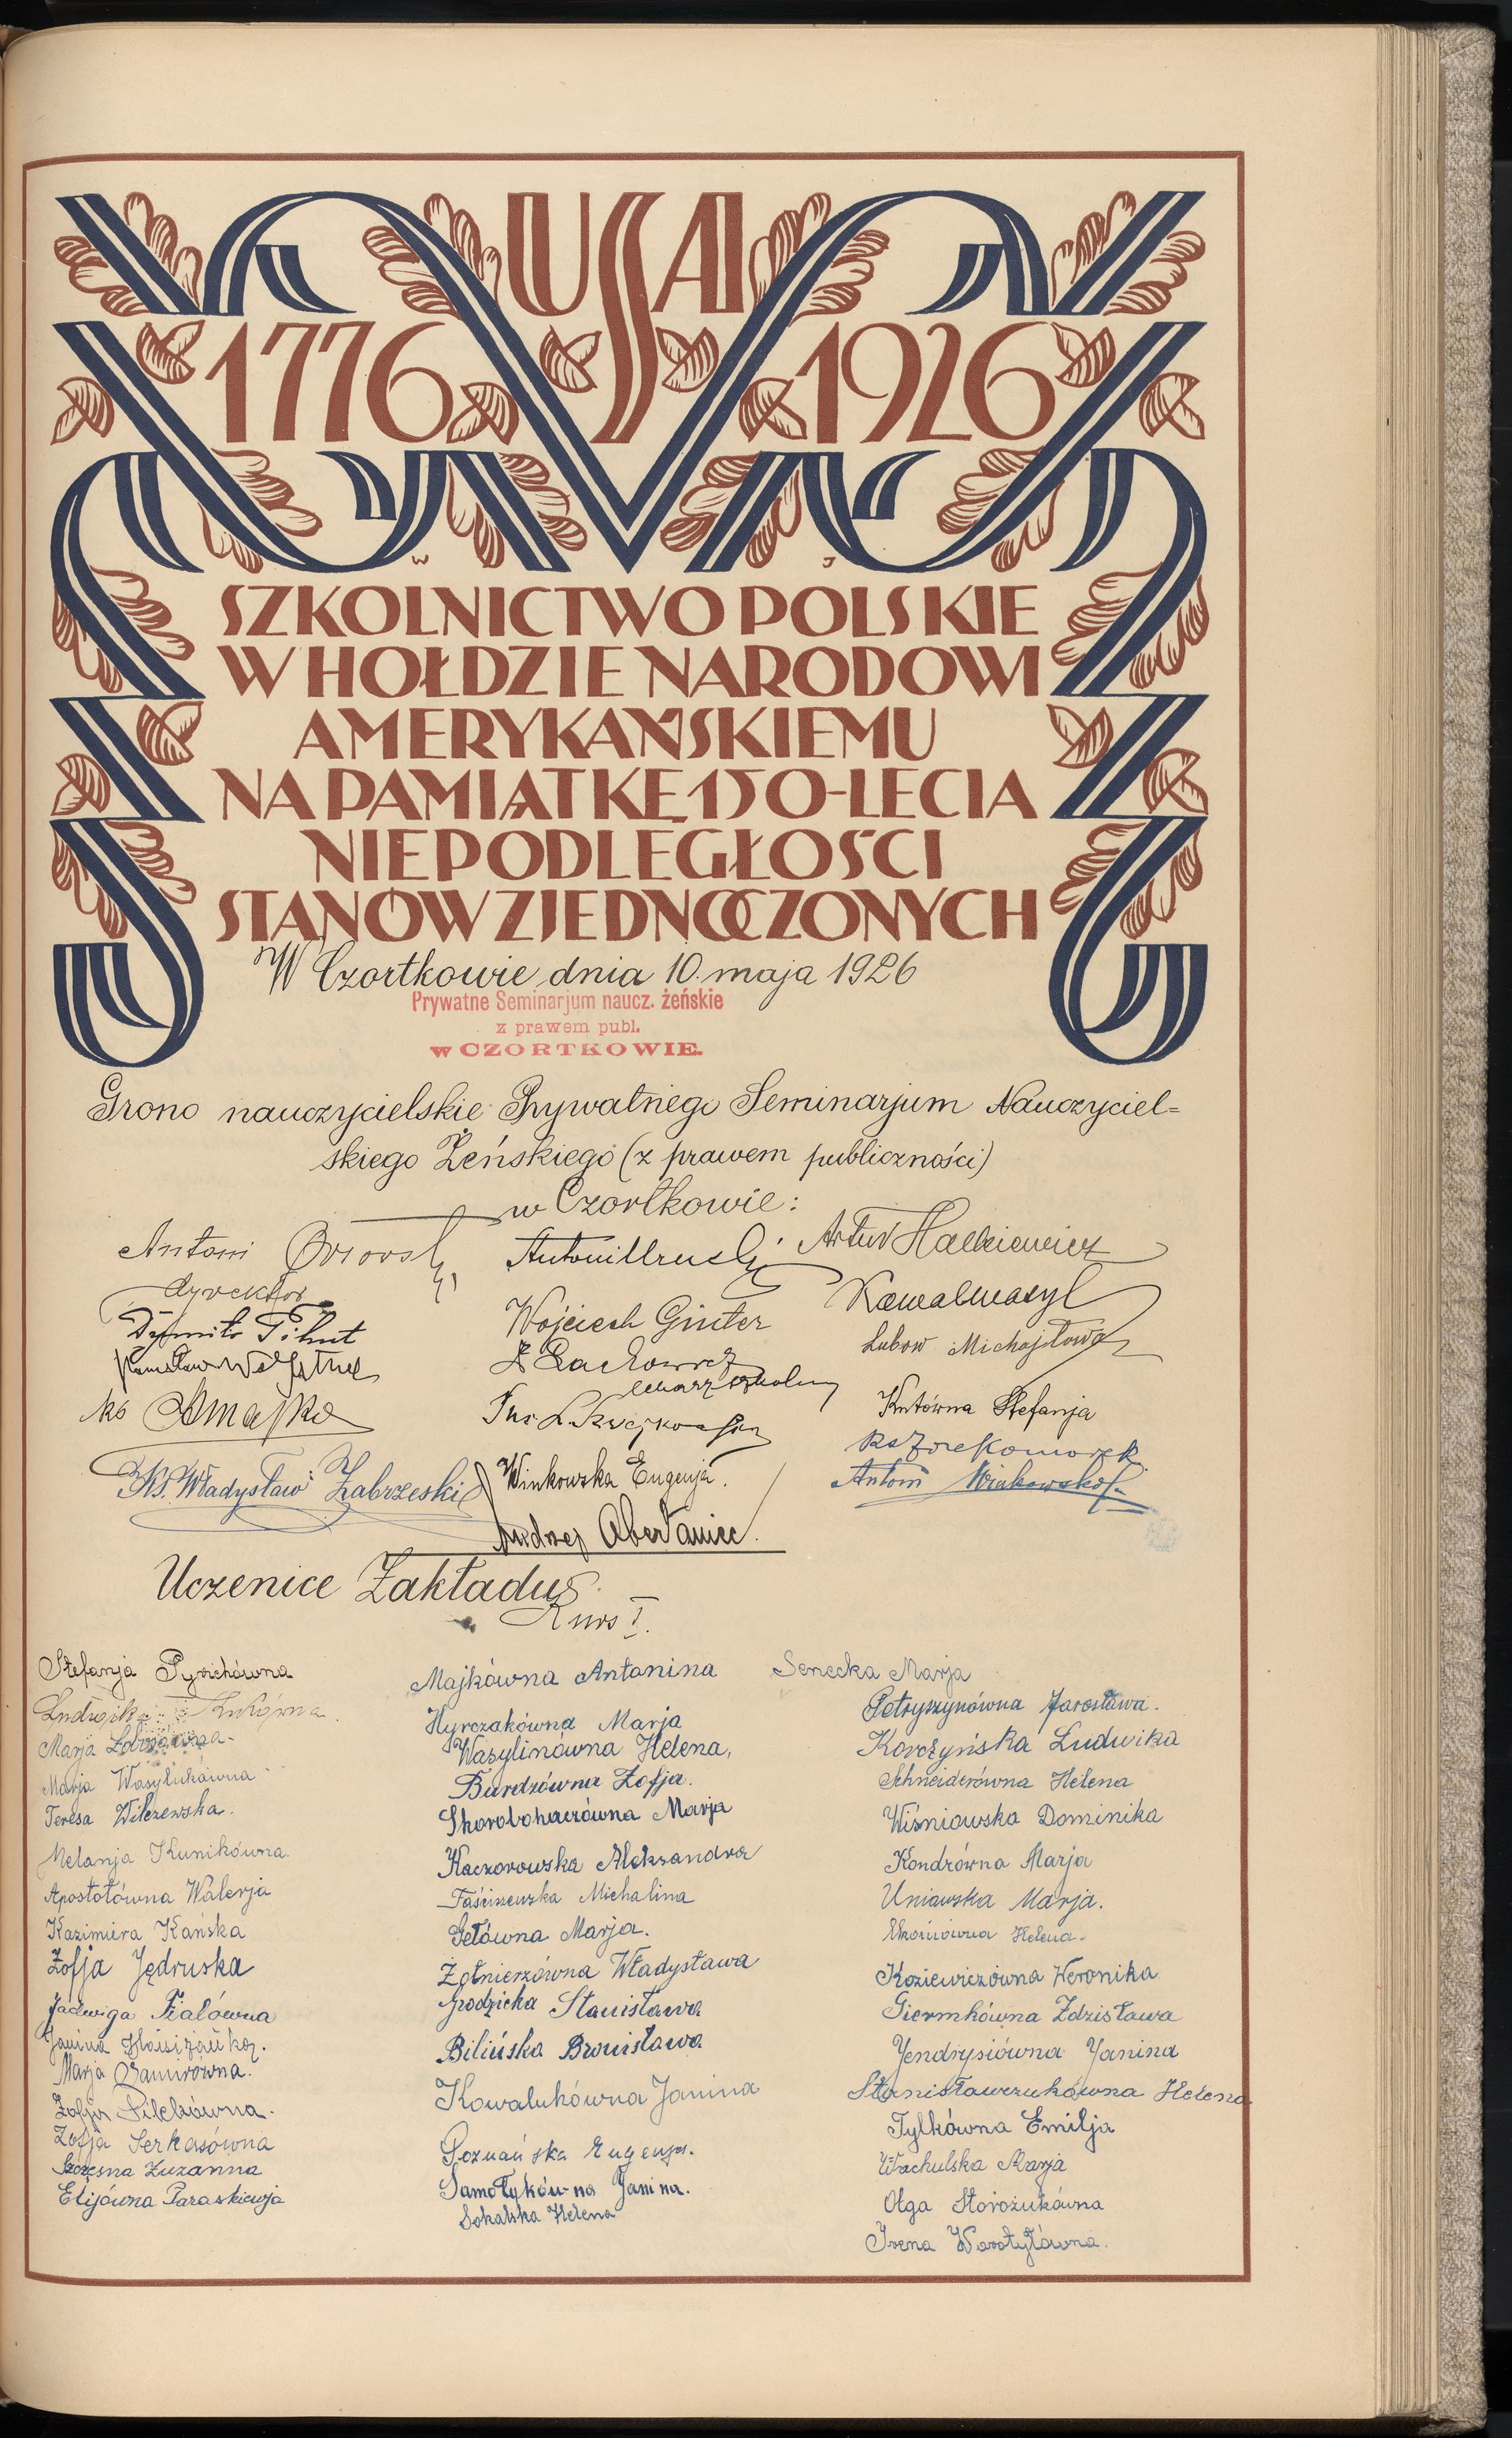 USA
1776 1926
W J
SZKOLNICTWO POLSKIE
W HOŁDZIE NARODOWI
AMERYKAŃSKIEMU
NA PAMIĄTKĘ 150-LECIA
NIEPODLEGŁOŚCI
STANÓW ZJEDNOCZONYCH
W Czortkowie dnia 10. maja 1926
Prywatne Seminarjum naucz. żeńskie
z prawem publ.
w CZORTKOWIE.
Grono nauczycielskie Prywatnego Seminarjum Nauczyciel=
skiego Żeńskiego (z prawem publiczności)
w Czortkowie:
Antoni
dyrektor
ks
Ks. Władysław Zabrzeski
Antoni
Wojciech Ginter
lekarz szkolny
Winkowska Eugenja.
Andrzej
Artur Halkiewicz
Kowal Wasyl
Lubow Michajłowa
Kutówna Stefanja
Antoni
Uczenice Zakładu
Kurs I.
Stefanja Pyrichówna
Ludwika
Marja
Marja Wasylukówna
Teresa Wilczewska.
Melanja Kunikówna.
Apostołówna Walerja
Kazimiera Kańska
Zofja Jędruska
Jadwiga Fialówna
Janina
Marja
Zofja
Zofja Serkasówna
Szczęsna Zuzanna
Elijówna Paraskiewja
Majkówna Antonina
Hyrczakówna Marja
Wasylinówna Helena,
Burdzówna Zofja.
Skorobohaczówna Marja
Kaczorowska Aleksandra
Michalina
Gełówna Marja.
Żołnierzówna Władysława
Grodzicka Stanisława
Bilińska Bronisława
Kowalukówna Janina
Poznańska Eugenja.
Samołykówna Janina.
Sokalska Helena
Senecka Marja
Petryszynówna Jarosława.
Korczyńska Ludwika
Schneiderówna Helena
Wiśniowska Dominika
Kondrówna Marja
Uniawska Marja.
Helena.
Koziewiczówna Weronika
Giermkówna Zdzisława
Jendrysiówna Janina
Stanisławczukówna Helena
Tylkówna Emilja
Wachulska Marja
Olga Storożukówna
Irena Worotyłówna.